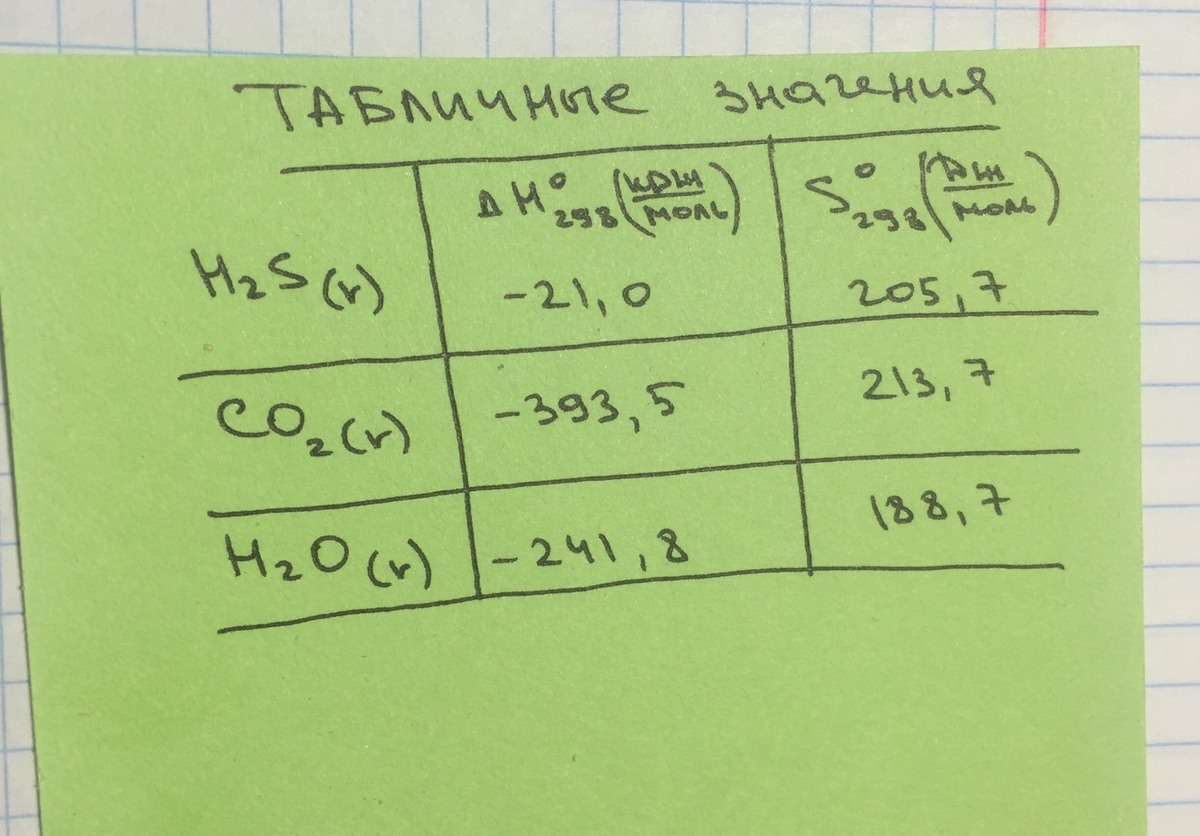 ТАБЛИЧНЫЕ значения
ΔH°298 (кДж/моль) S°298 (Дж/моль)
H2S(г) -21,0 205,7
CO2(г) -393,5 213,7
H2O(г) -241,8 188,7